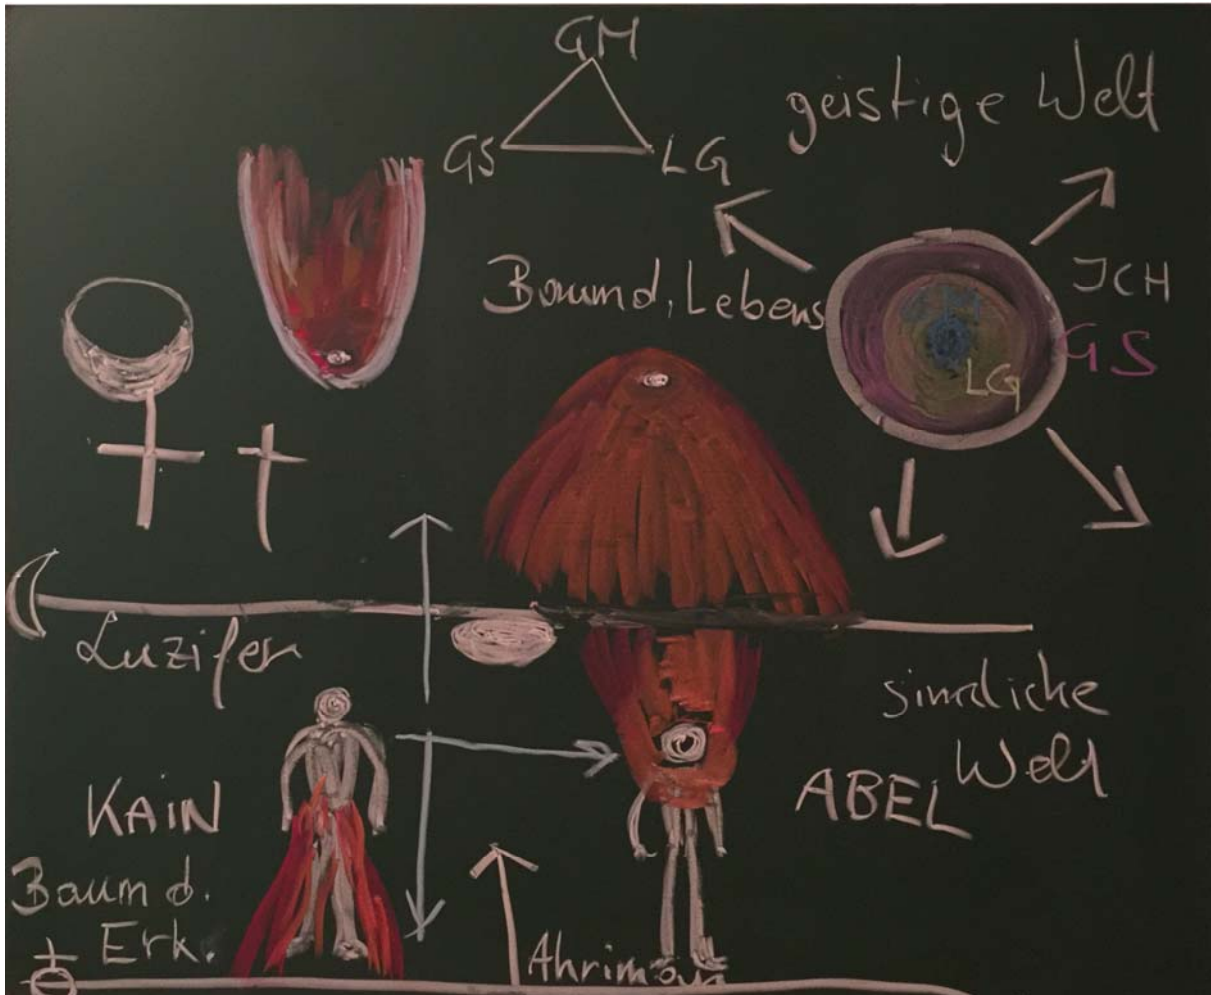 GM
GS
LG
geistige Welt
Baum d. Lebens
ICH
GS
GM
LG
Luzifer
sinnliche
Welt
KAIN
ABEL
Baum d.
Erk.
Ahriman